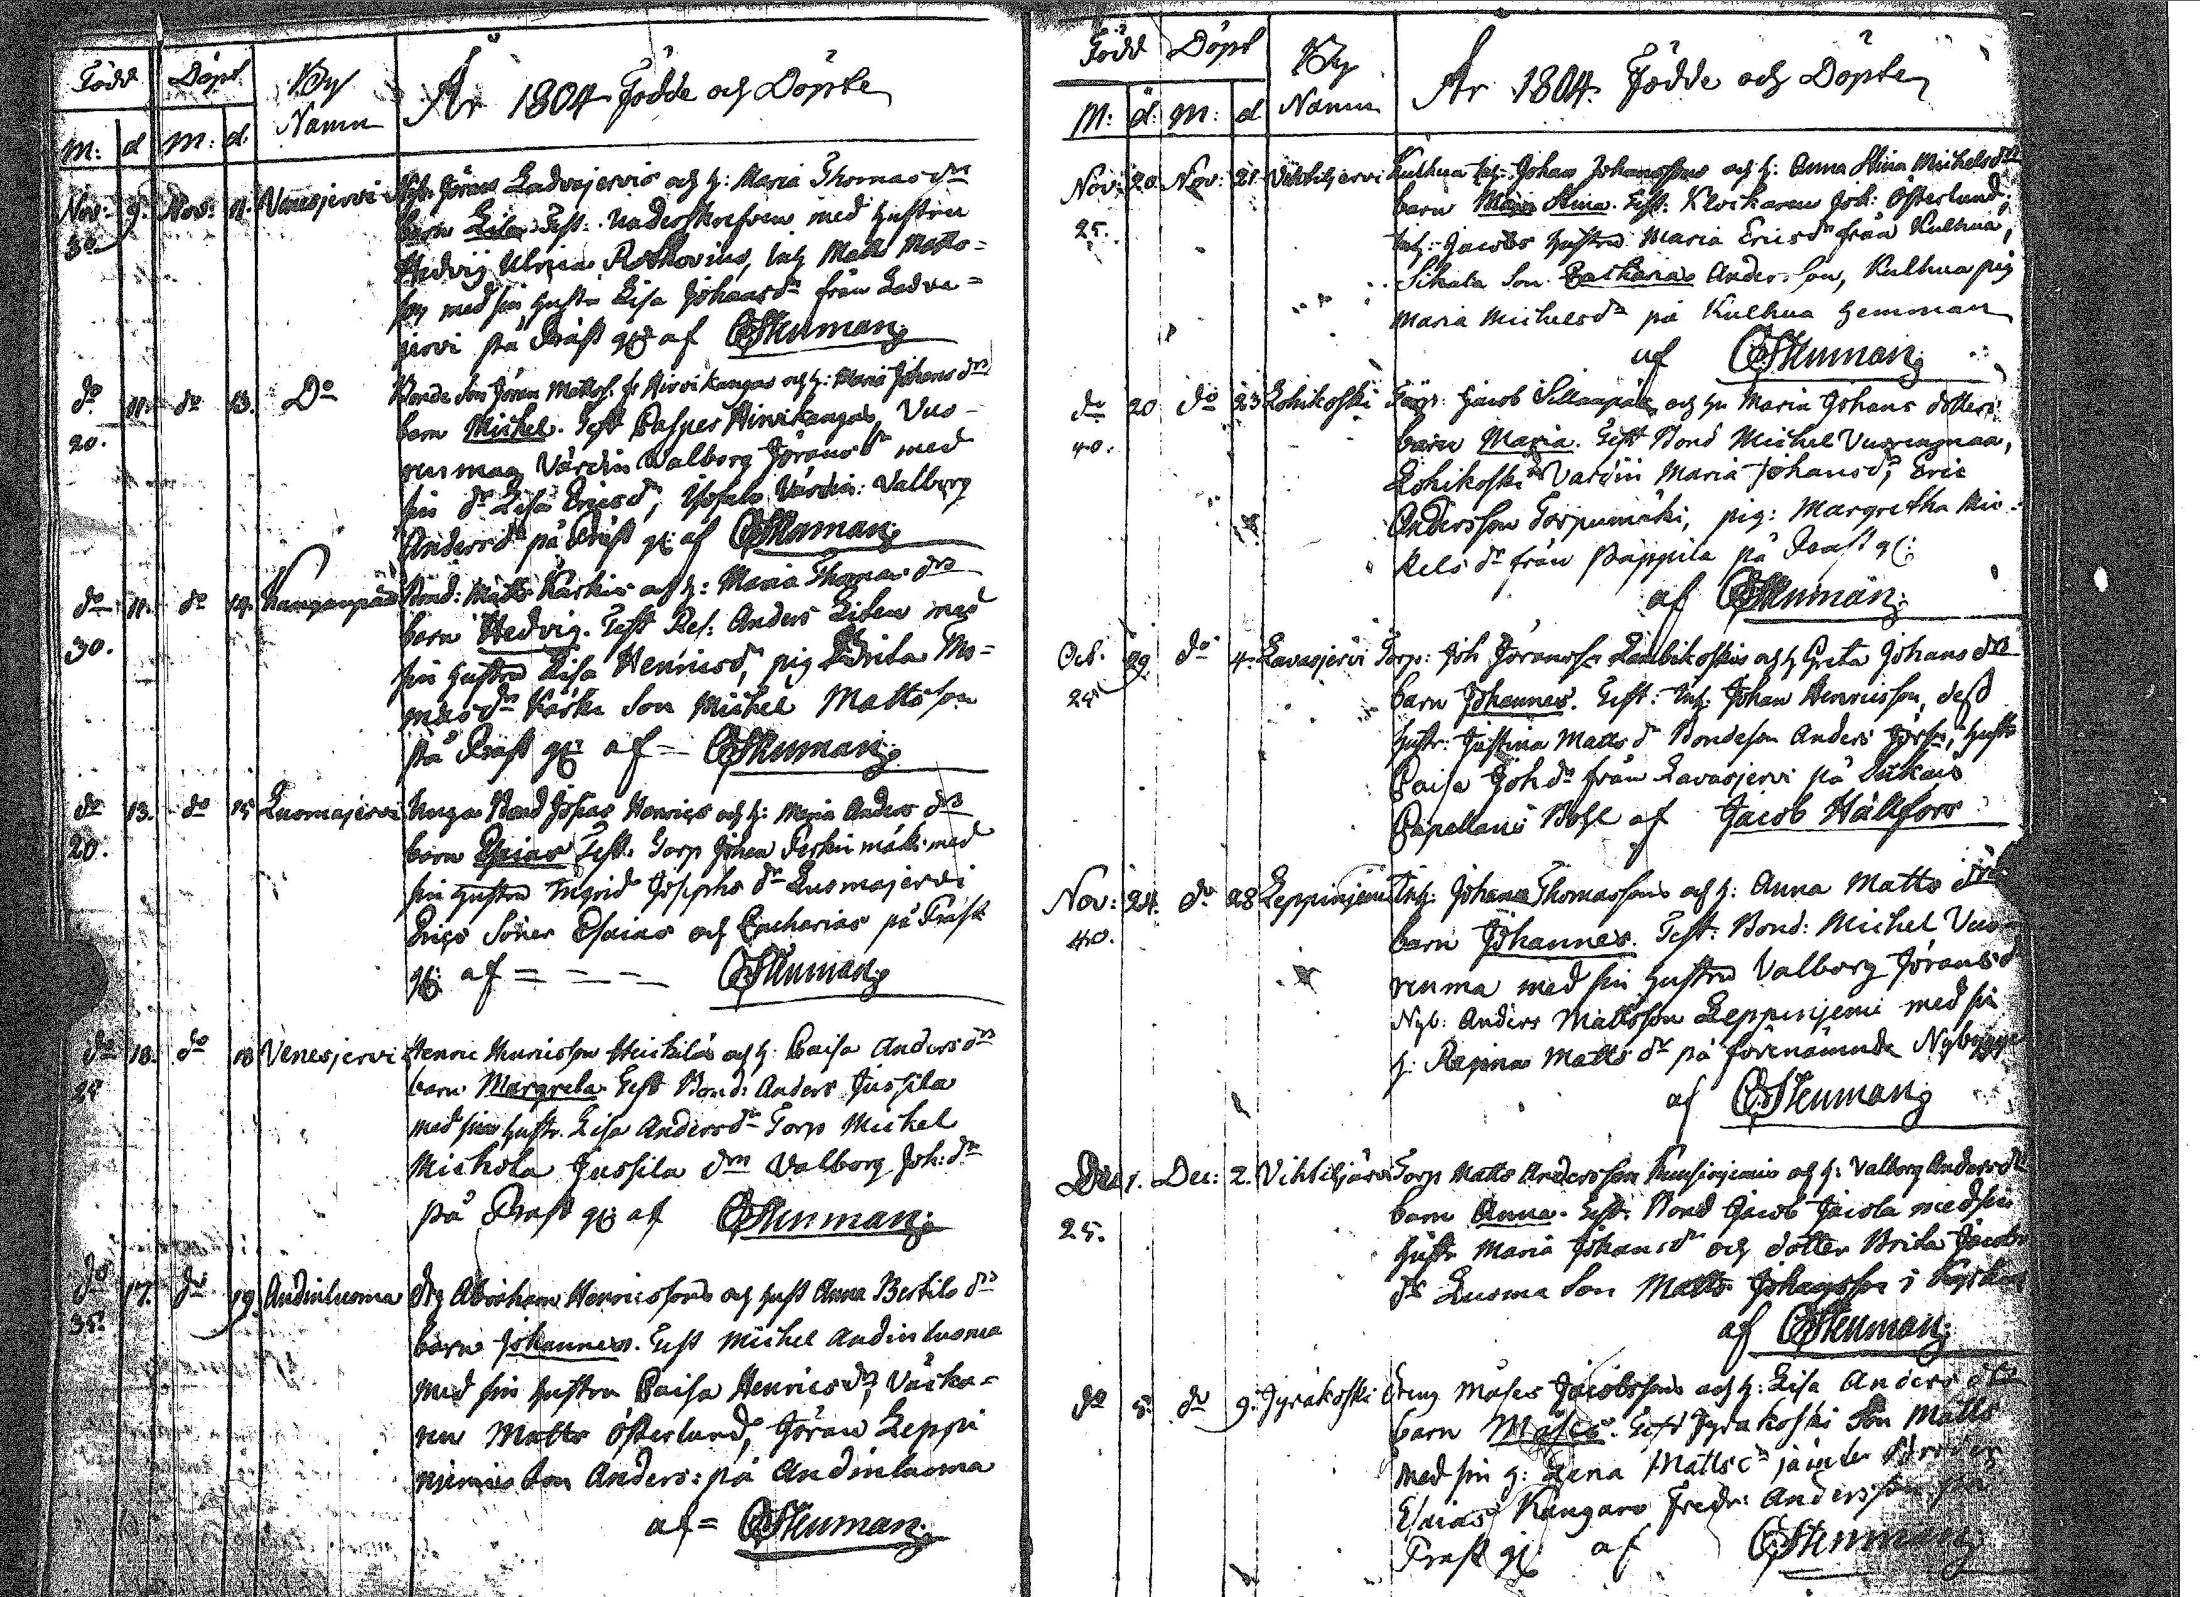 Född Döpt By Namn År 1804 Födde och Döpte
M: d M: d.
Nov: 9. Nov: 11. Venesjervi Jöran Ladvajervis och h: Maria Thomas dr
30
barn Lisa. Test: Underskrefven med hustru
Hedvig Ulrica Matts Matts-
son med sin hustru Lisa Johansdr från Ladva-
jervi på Präst gl: af CStenman
do 11. do 13. Do Bonde Son Jöran Mattss. fr Hirvikangas och h: Maria Johans dr
20.
barn Michel. Test Casper Hirvikangas, Vuo-
renmaa Värdin Valborg Jöransdr med
sin dr Lisa Ericsdr, Värdin: Valborg
Andersdr på Präst gl: af CStenman
do 11. do 14. Kanganpää Bond: Matts Kaskis och h: Maria Thomas dr
30.
barn Hedvig. Test Res: Anders Liten med
sin hustru Lisa Henricsdr, pig Brita Tho-
mas dr Kaski Son Michel Mattsson
på Präst gl: af - CStenman
do 13. do 15 Luomajervi Unga Bond Johans Henrics och h: Maria Anders dr
20.
barn Esaias Test: Torp Johan med
sin hustru Ingrid Josephs dr Luomajervi
Erics Söner Esaias och Zacharias på Präst
gl: af = - - CStenman
do 18. do 18 Venesjervi Henric Henricsson Heickiläs och h: Caisa Anders dr
24
barn Margreta. Test Bond: Anders Jussila
med sin hustr. Lisa Andersdr Torp Michel
Mickola Jussila drn Valborg Joh: dr
på Präst gl: af CStenman
do 17. do 19. Andinluoma Abraham Henricssons och hust Anna Bertils dr
35.
barn Johannes. Test Michel Andinluoma
med sin hustru Caisa Henricsdr, Väska-
ren Matts Österlund, Jöran Leppi
njemis Son Anders: på Andinluoma
af = CStenman
Född Döpt By Namn År 1804. Födde och Döpte
M: d: M: d
Nov: 20. Nov: 21. Vihtiljervi Kulhua Inh: Johan Johanssons och h: Anna Stina Michelsdr
25.
barn Maja Stina. Test: Klockaren Joh: Österlund,
Inh: Jacobs hustru Maria Ericsdr från Kulhua,
Sikala Son Zacharias Anders son, Kulhua pig
Maria Michelsdr på Kulhua hemman
af CStenman
do 20 do 23 Lohikoski Torp: Jacob Sillanpää och h. Maria Johans dotters
40.
barn Maria. Test Bond Michel Vuorenmaa,
Lohikoski Värdin Maria Johansdr, Eric
Andersson Torpumäki, pig: Margretha Mic-
kels dr från Pappila på Präst gl:
af CStenman
Oct. 29 do 4. Lavasjervi Torp: Joh Jöransson Lambikoskis och h Greta Johans dr
25
barn Johannes. Test: Inh: Johan Henricsson, dess
hustr: Justina Matts dr Bondeson Anders hust
Caisa Joh dr från Lavasjervi på Ikkais
Capellans Bohl af Jacob Hällfors
Nov: 24. do 28 Leppinjemi Inh: Johan Thomassons och h: Anna Matts drs
40.
barn Johannes. Test: Bond: Michel Vuo-
renma med sin hustru Valborg Jöransd
Nyb: Anders Mattsson Leppinjemi med sin
h: Regina Matts dr på förenämnde Nybygge
af CStenman
Dec 1. Dec: 2. Vihtiljärvi Torp Matts Andersson Kuusinjemis och h: Valborg Andersdr
25.
barn Anna. Test: Bond Jacob Jacola med sin
hustr Maria Johansdr och dotter Brita Jacobs
dr Luoma Son Matts Johansson i Kyrkan
af CStenman
do 5. do 9. Jyräkoski Dreng Moses Jacobssons och h: Lisa Anders drs
barn Moses. Test Jyräkoski Son Matts
med sin h: Lena Mattsdr Broder
Esaias Kangars Fredr: Andersson
Präst gl: af CStenman